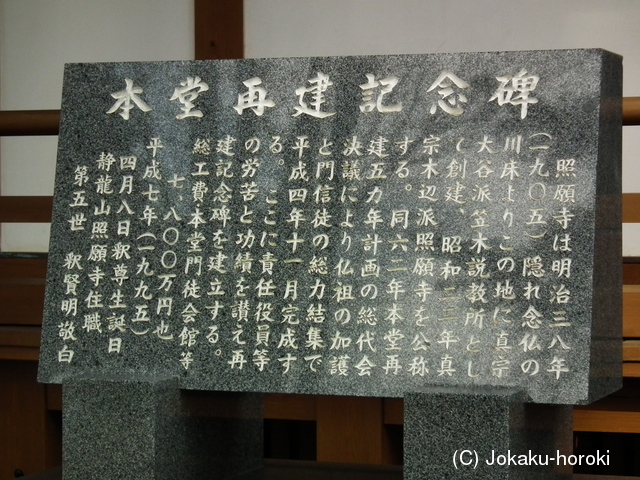 本堂再建記念碑
照願寺は明治三八年
(一九〇五)隠れ念仏の
川床よりこの地に真宗
大谷派笠木説教所とし
て創建、昭和二二年真
宗木辺派照願寺を公称
する。同六二年本堂再
建五カ年計画の総代会
決議により仏祖の加護
と門信徒の総力結集で
平成四年十一月完成す
る。ここに責任役員等
の労苦と功績を讃え再
建記念碑を建立する。
総工費本堂門徒会館等
七、八〇〇万円也
平成七年(一九九五)
四月八日釈尊生誕日
静龍山照願寺住職
第五世 釈賢明敬白
(C) Jokaku-horoki